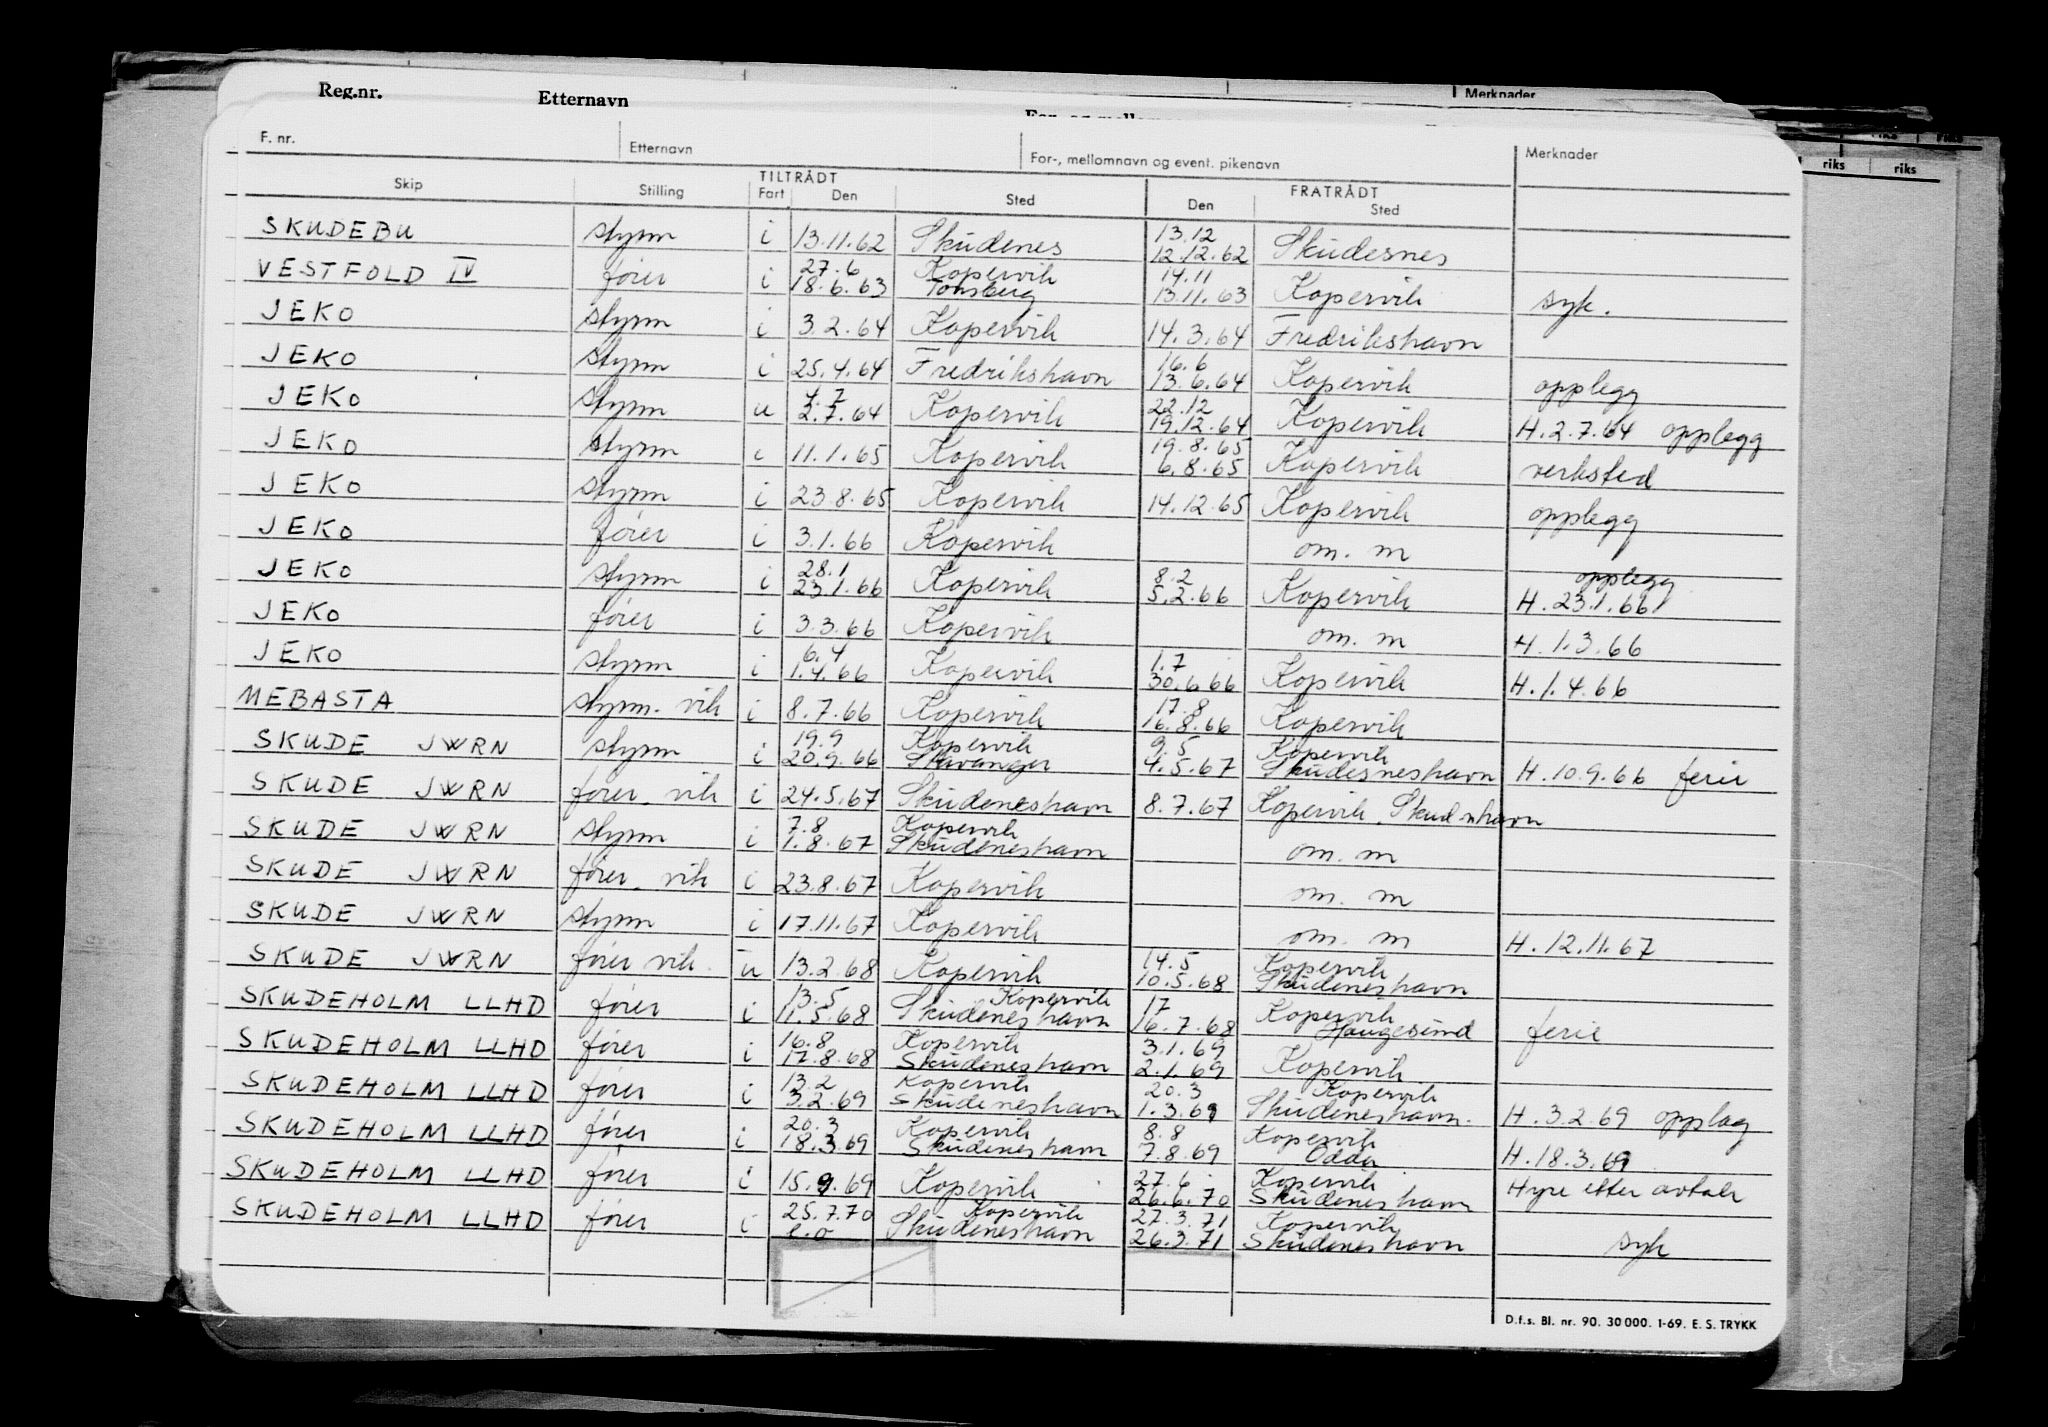 Reg.nr. Etternavn Merknader
F. nr. Etternavn For-, mellomnavn og event. pikenavn Merknader riks riks
TILTRÅDT FRATRÅDT
Skip Stilling Fart Den Sted Den Sted
13.12
SKUDEBU styrm i 13.11.62 Skudenes 12.12.62 Skudesnes
27.6 Kopervik 14.11
VESTFOLD IV fører i 18.6.63 Tønsberg 13.11.63 Kopervik syk.
JEKO styrm i 3.2.64 Kopervik 14.3.64 Fredrikshavn
16.6
JEKO styrm i 25.4.64 Fredrikshavn 13.6.64 Kopervik opplegg
4.7 22.12
JEKO styrm u 2.7.64 Kopervik 19.12.64 Kopervik H.2.7.64 opplegg
19.8.65
JEKO styrm i 11.1.65 Kopervik 6.8.65 Kopervik verksted
JEKO styrm i 23.8.65 Kopervik 14.12.65 Kopervik opplegg
JEKO fører i 3.1.66 Kopervik om. m
28.1 8.2 opplegg
JEKO styrm i 23.1.66 Kopervik 5.2.66 Kopervik H.23.1.66
JEKO fører i 3.3.66 Kopervik om. m H.1.3.66
6.4 1.7
JEKO styrm i 1.4.66 Kopervik 30.6.66 Kopervik H.1.4.66
17.8
MEBASTA styrm. vik i 8.7.66 Kopervik 16.8.66 Kopervik
19.9 Kopervik 9.5 Kopervik
SKUDE JWRN styrm i 20.9.66 Stavanger 4.5.67 Skudesneshavn H.10.9.66 ferie
SKUDE JWRN fører. vik i 24.5.67 Skudeneshavn 8.7.67 Kopervik. Skud.nhavn
7.8 Kopervik
SKUDE JWRN styrm i 1.8.67 Skudeneshavn om. m
SKUDE JWRN fører. vik i 23.8.67 Kopervik om. m
SKUDE JWRN styrm i 17.11.67 Kopervik om. m H.12.11.67
14.5 Kopervik
SKUDE JWRN fører vik. u 13.2.68 Kopervik 10.5.68 Skudeneshavn
13.5 Kopervik 17 Kopervik
SKUDEHOLM LLHD fører i 11.5.68 Skudeneshavn 16.7.68 Haugesund ferie
16.8 Kopervik 3.1.69
SKUDEHOLM LLHD fører i 17.8.68 Skudeneshavn 2.1.69 Kopervik
13.2 Kopervik 20.3 Kopervik
SKUDEHOLM LLHD fører i 3.2.69 Skudeneshavn 1.3.69 Skudeneshavn. H.3.2.69 opplag
20.3 Kopervik 8.8 Kopervik
SKUDEHOLM LLHD fører i 18.3.69 Skudeneshavn 7.8.69 Odda H.18.3.69
27.6 Kopervik
SKUDEHOLM LLHD fører i 15.9.69 Kopervik 26.6.70 Skudeneshavn Hyre etter avtale
25.7.70 Kopervik 27.3.71 Kopervik
SKUDEHOLM LLHD fører i Skudeneshavn 26.3.71 Skudeneshavn syk
D.f.s. Bl. nr. 90. 30 000. 1-69. E. S. TRYKK